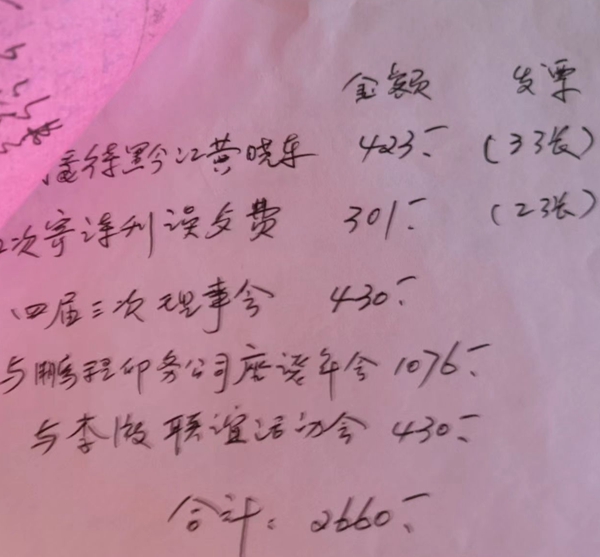 金额 发票
接待黔江黄晓东 423.- (33张)
次寄诗刊误多费 301.- (23张)
四届三次理事会 430.-
与鹏程印务公司座谈年会 1076.-
与李渡联谊活动会 430.-
合计: 2660.-